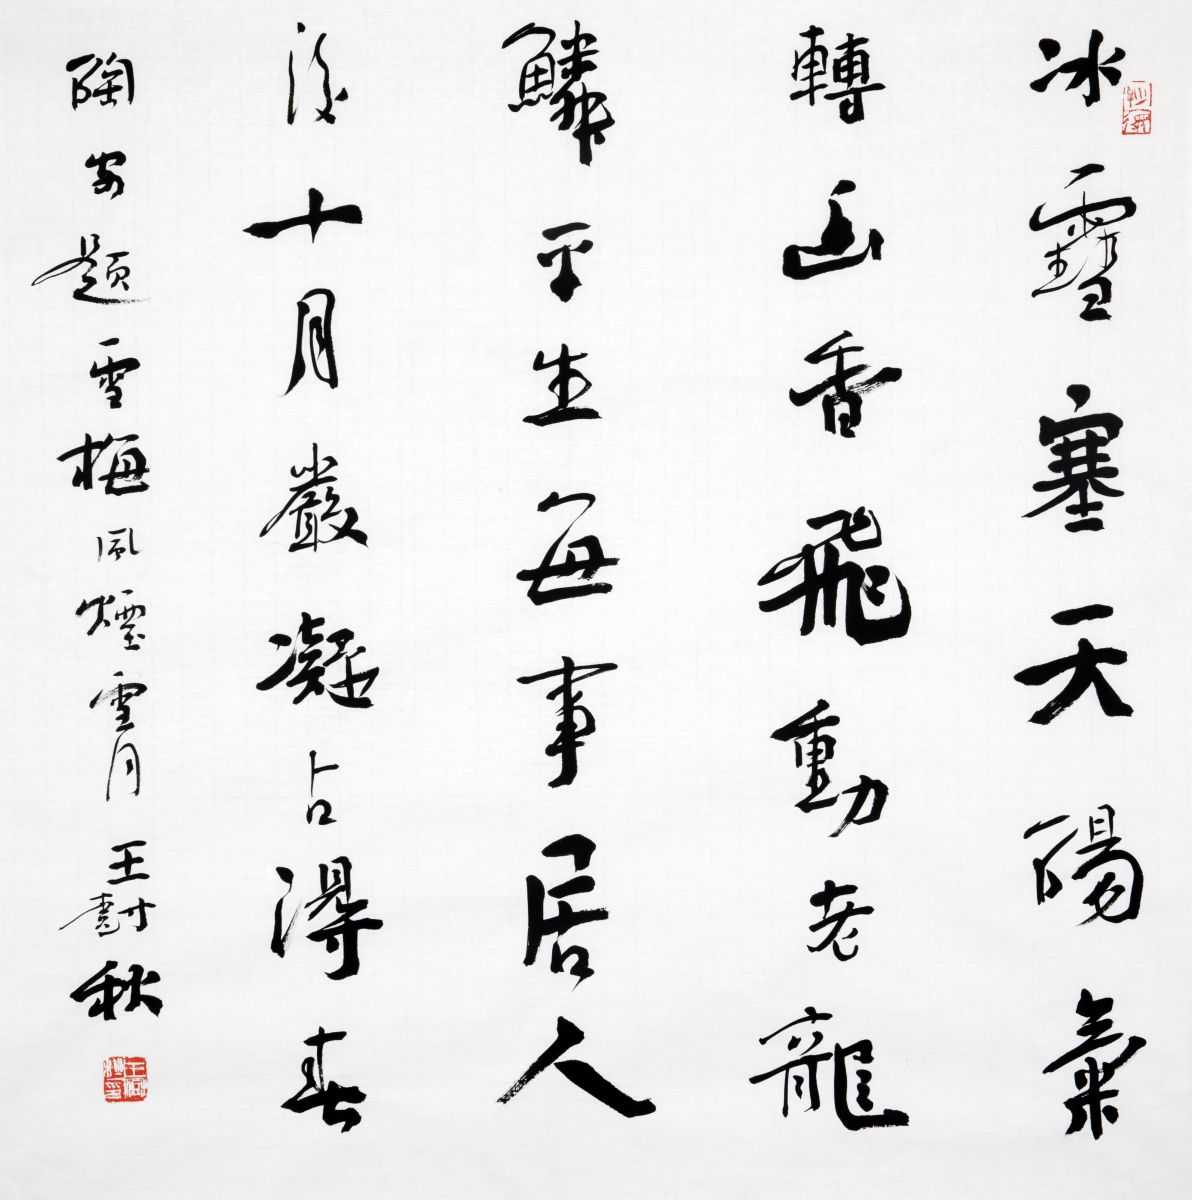 冰雪塞天陽氣
轉幽香飛動老龍
鱗平生每事居人
後十月嚴凝占得春
陶安題雪梅風煙雪月王樹秋